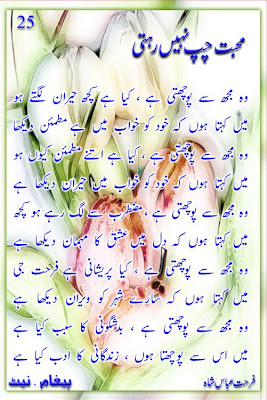 25
محبت چپ نہیں رہتی
وہ مجھ سے پوچھتی ہے ، کیا ہے کچھ حیران لگتے ہو
میں کہتا ہوں کہ خود کو خواب میں ہے مطمئن دیکھا
وہ مجھ سے پوچھتی ہے ، کیا ہے اتنے مطمئن کیوں ہو
میں کہتا ہوں کہ خود کو خواب میں حیران دیکھا ہے
وہ مجھ سے پوچھتی ہے ، مضطرب سے لگ رہے ہو کچھ
میں کہتا ہوں کہ دل میں عشق کا مہمان دیکھا ہے
وہ مجھ سے پوچھتی ہے ، کیا پریشانی ہے فرحت جی
میں کہتا ہوں کہ سارے شہر کو ویران دیکھا ہے
وہ مجھ سے پوچھتی ہے ، بدشگونی کا سبب کیا ہے
میں اس سے پوچھتا ہوں ، زندگانی کا ادب کیا ہے
فرحت عباس شاہ
پیغام . نیٹ